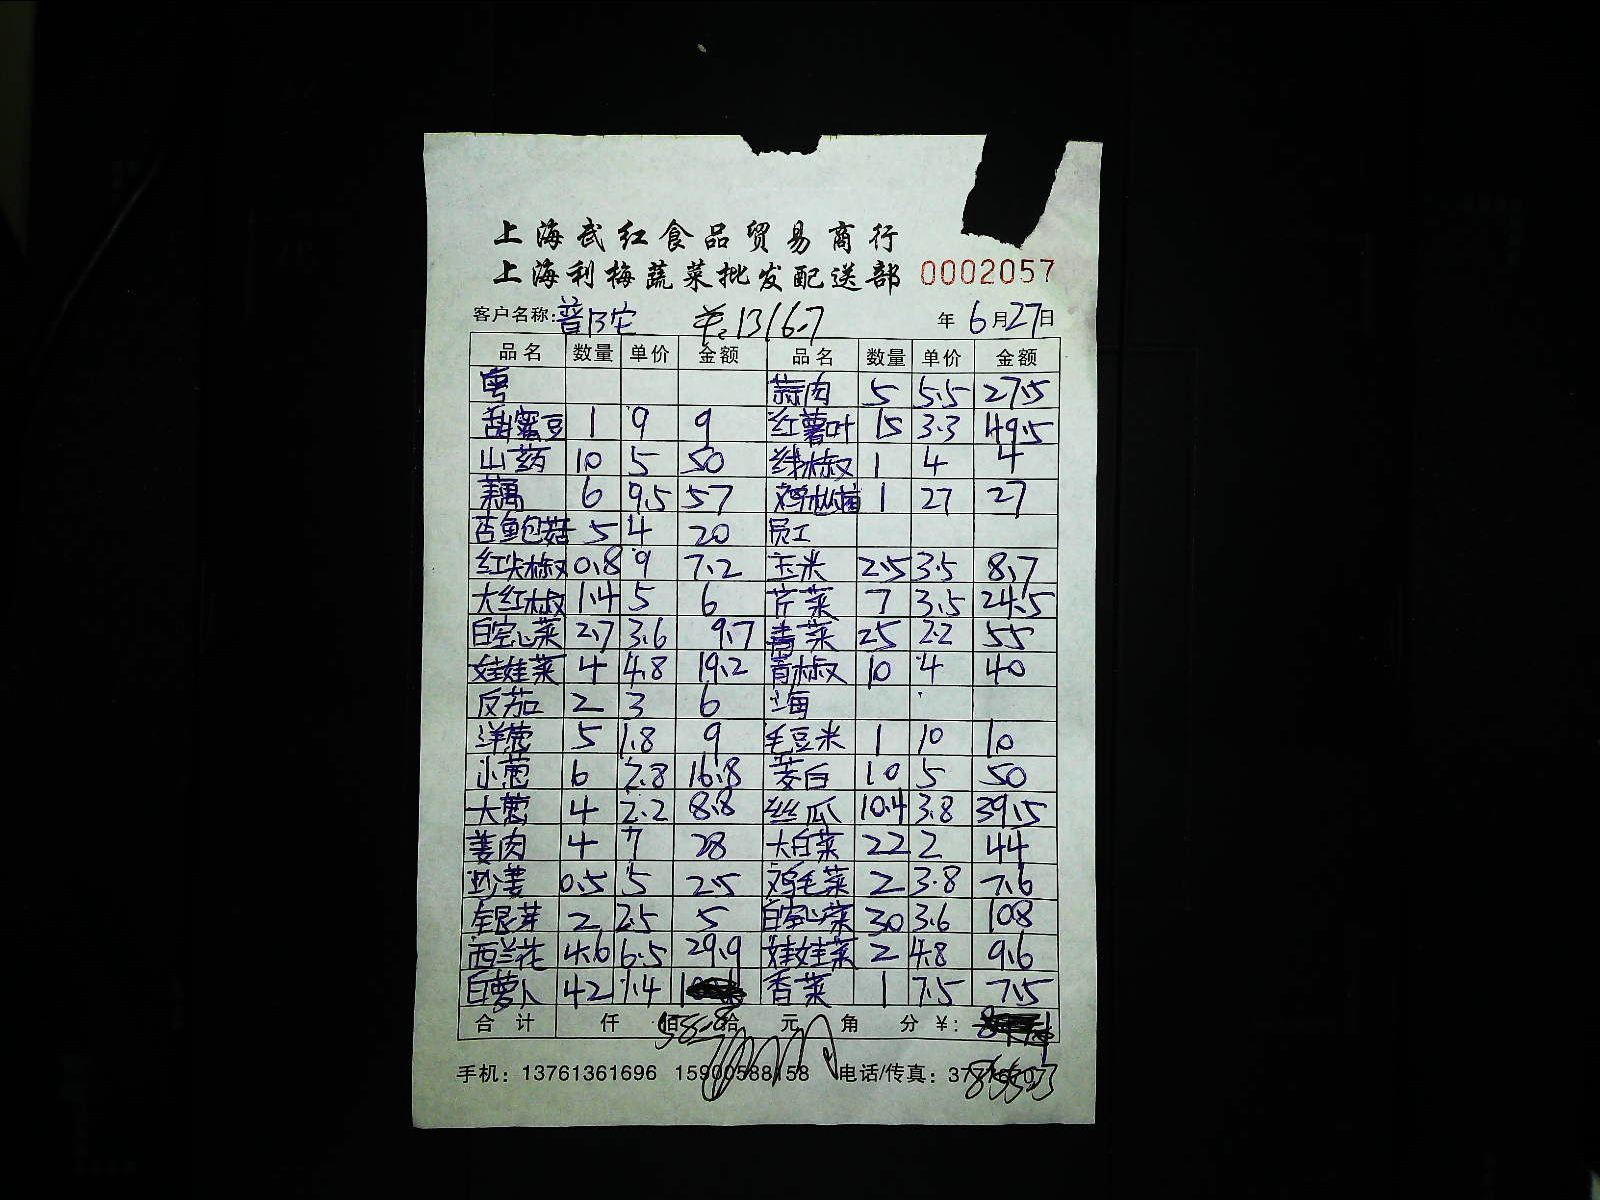 上海武红食品贸易商行
上海利梅蔬菜批发配送部 0002057
客户名称: 普陀 1316.7 年 6月27日
品名 数量 单价 金额 品名 数量 单价 金额
粤 蒜肉 5 5.5 27.5
甜蜜豆 1 9 9 红薯叶 15 3.3 49.5
山药 10 5 50 线椒 1 4 4
藕 6 9.5 57 鸡枞菌 1 27 27
杏鲍菇 5 4 20 员工
红尖椒 0.8 9 7.2 玉米 2.5 3.5 8.7
大红椒 1.4 5 6 芹菜 7 3.5 24.5
白空心菜 2.7 3.6 9.7 青菜 25 2.2 55
娃娃菜 4 4.8 19.2 青椒 10 4 40
反茄 2 3 6 上海
洋葱 5 1.8 9 毛豆米 1 10 10
小葱 6 2.8 16.8 茭白 10 5 50
大葱 4 2.2 8.8 丝瓜 10.4 3.8 39.5
姜肉 4 7 28 大白菜 22 2 44
沙姜 0.5 5 2.5 鸡毛菜 2 3.8 7.6
银芽 2 2.5 5 白空心菜 30 3.6 108
西兰花 4.6 6.5 29.9 娃娃菜 2 4.8 9.6
白萝卜 42 1.4 香菜 1 7.5 7.5
合计 仟 佰 拾 元 角 分 ¥:
手机: 13761361696 15900588158 电话/传真: